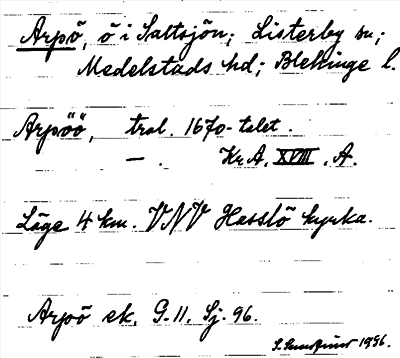 Arpö, ö i Saltsjön; Listerby sn;
Medelstads hd; Blekinge l.
Arpöö, tral. 1670-talet.
— . KrA. XVIII. A.
Läge 4 km. VNV Hasslö kyrka.
Arpö ek. G. 11. Sj. 96.
1956.